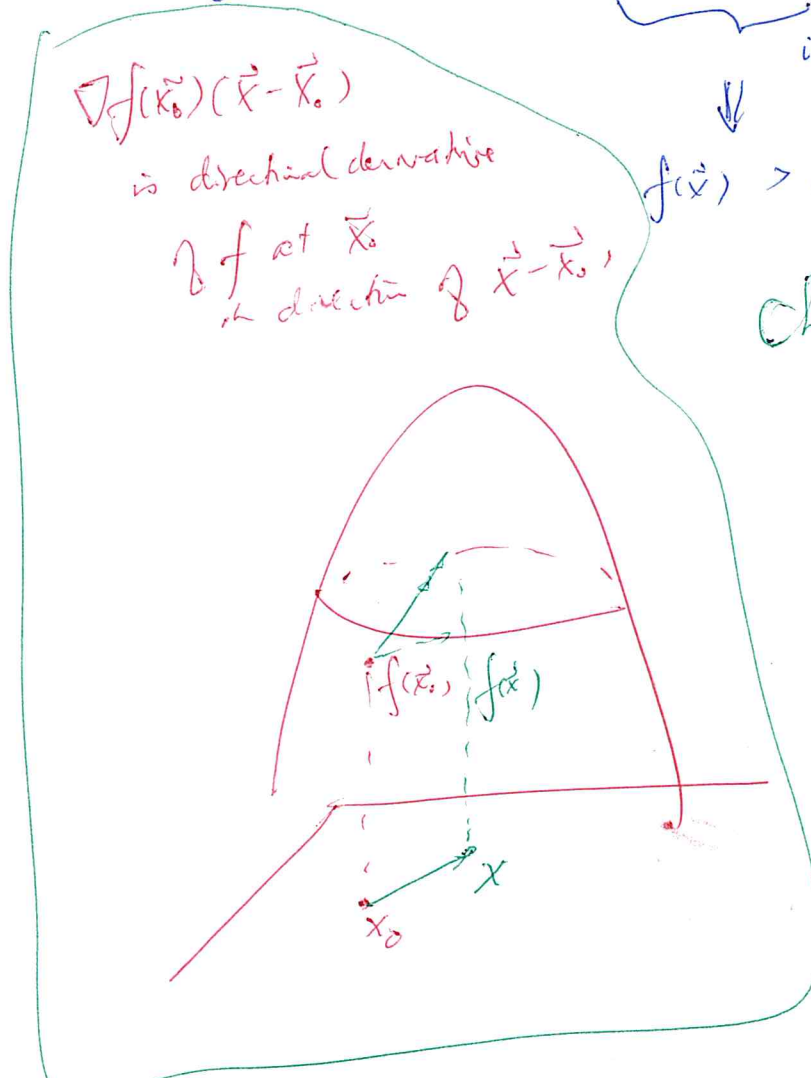 ∇f(x⃗₀)(x⃗-x⃗₀)
is directional derivative
of f at x⃗₀
in direction of x⃗-x⃗₀,
i
⇓
f(x⃗) >
f(x⃗₀) f(x⃗)
X
x₀